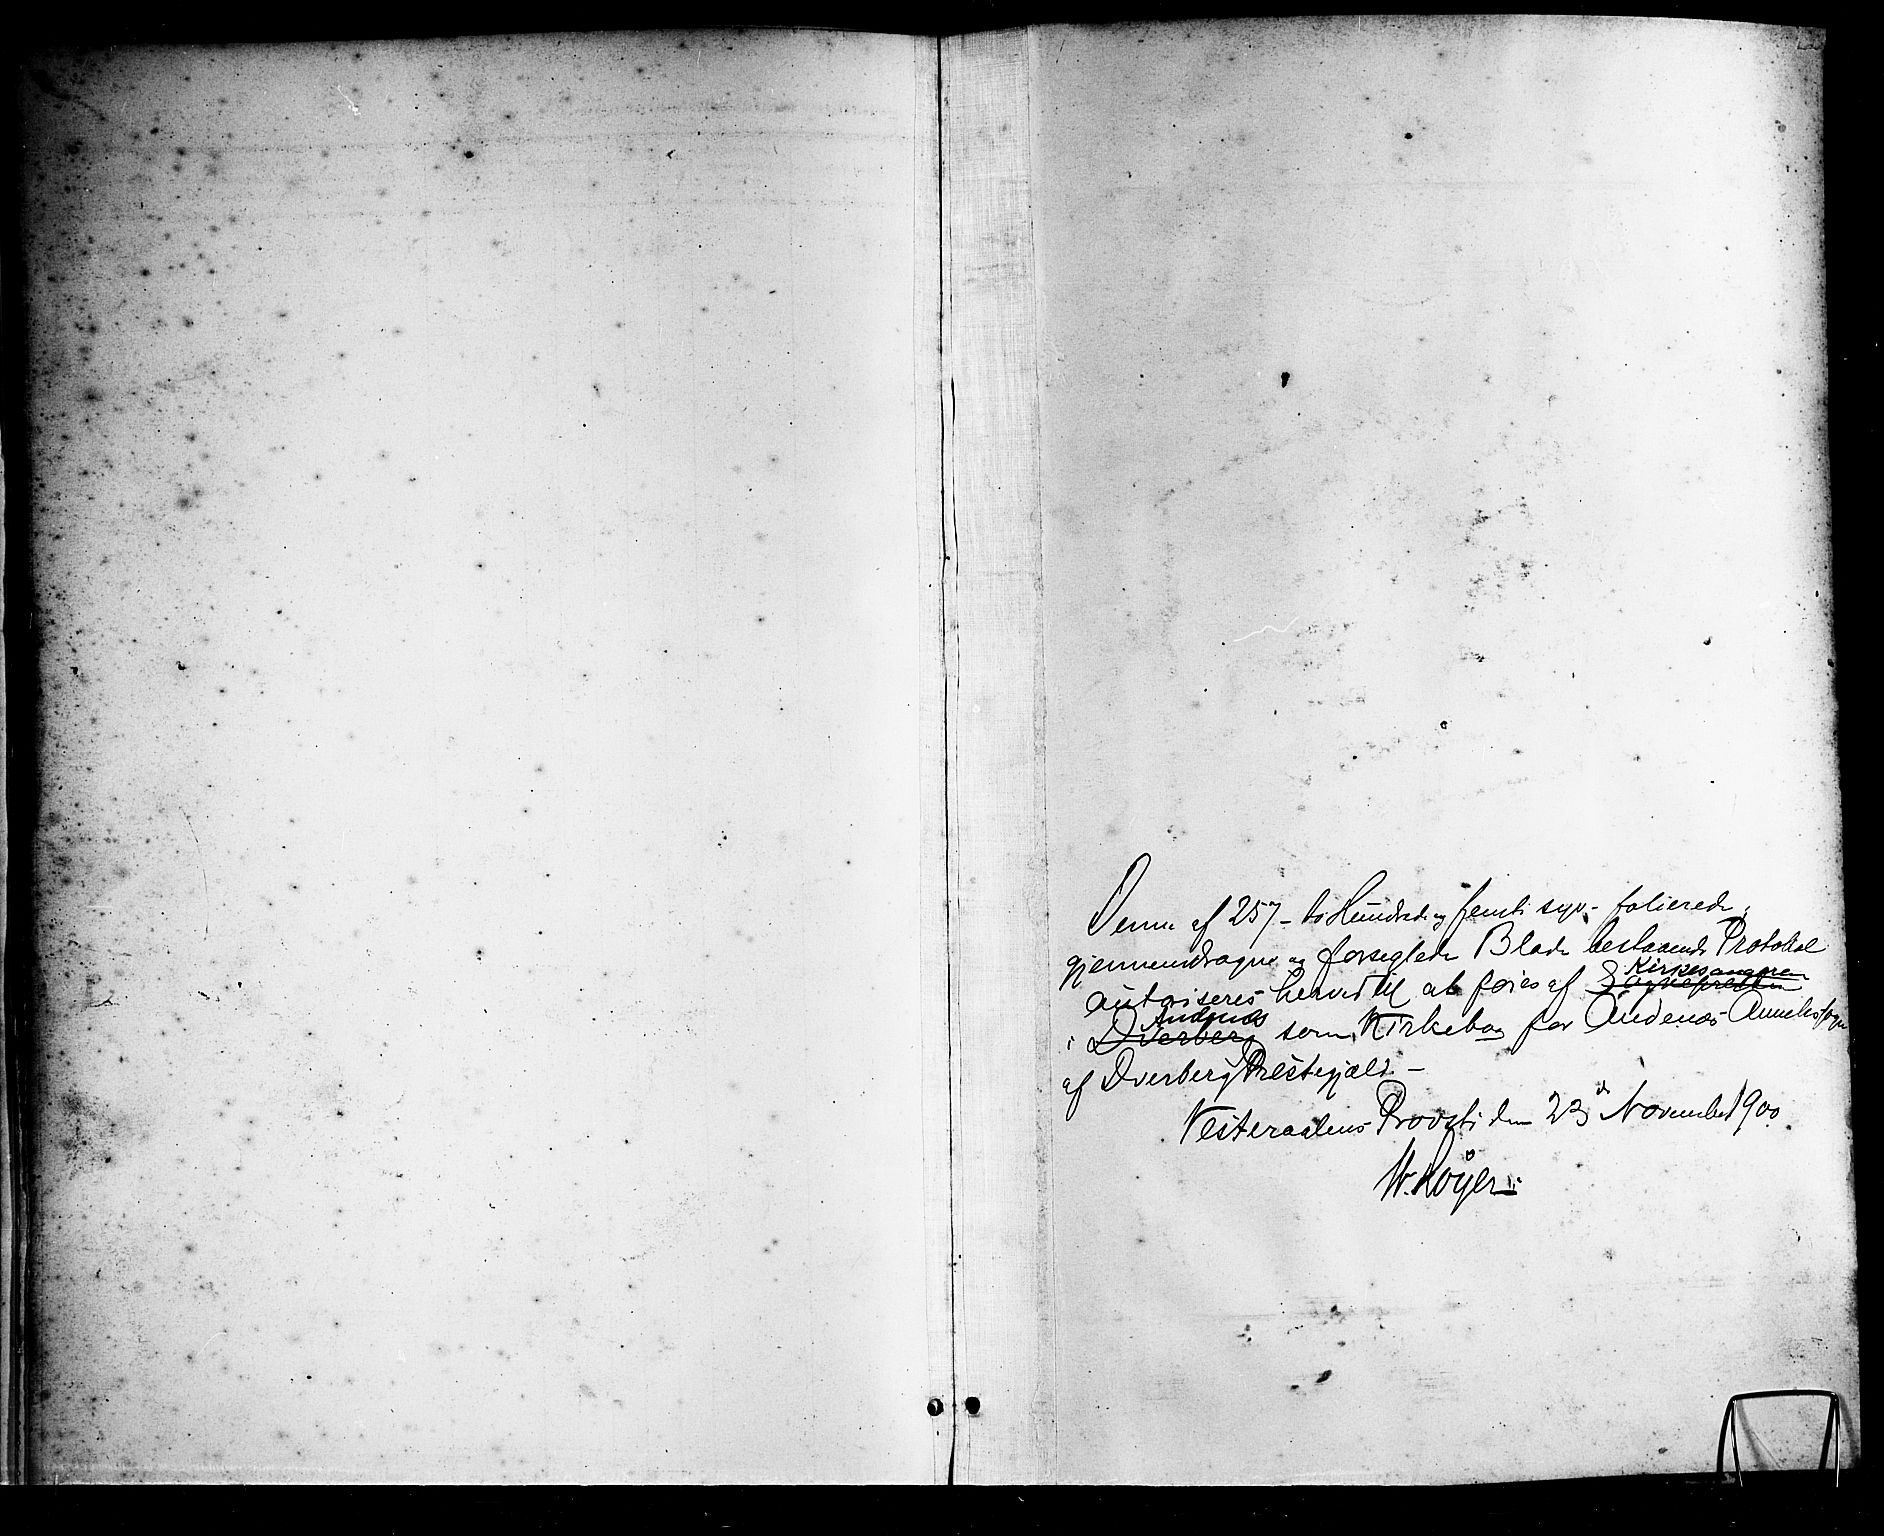 Denne af 257 - to Hundred og femti syv - folierede,
gjennemdragne og forseglede Blade bestaaende Protokol
Kirkesangeren
autoriseres herved til at føres af Sognepresten
Andenæs
i Dverberg som Kirkebog for Andenæs Annekssogn
af Dverberg Præstegjæld. -
Vesteraalens Provsti den 23de November 1900.
W. Røyer.